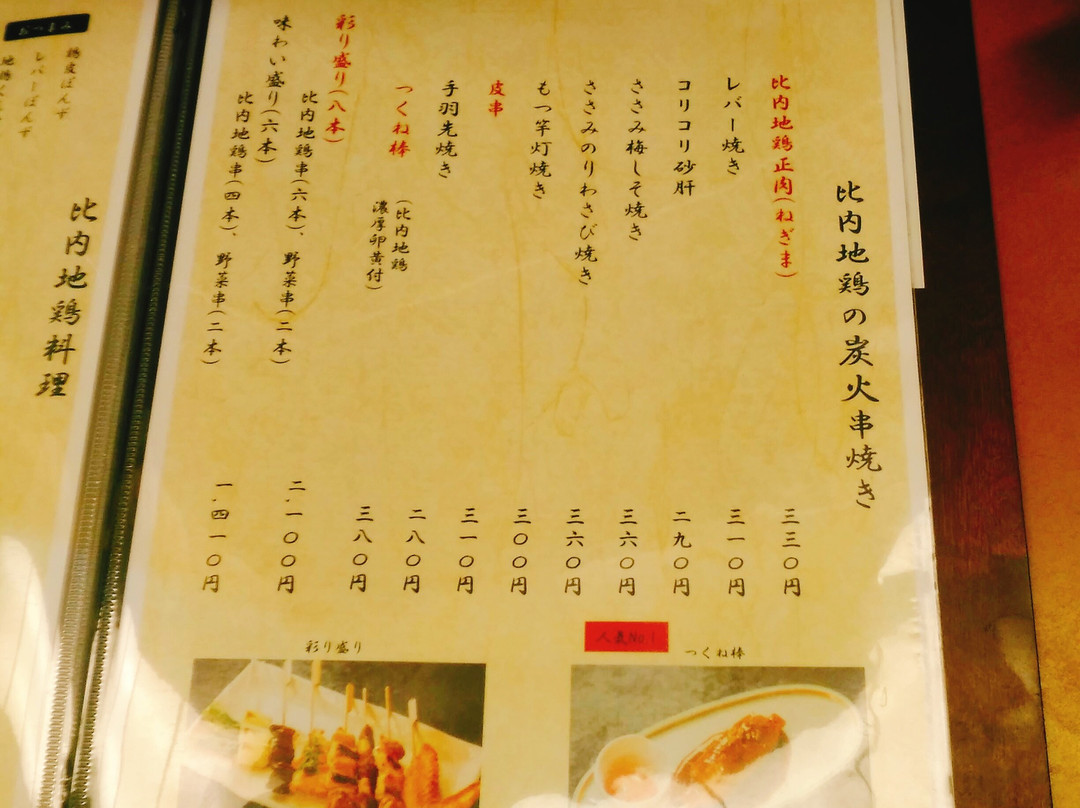 比内地鶏の炭火串焼き
比内地鶏正肉(ねぎま) 三三〇円
レバー焼き 三一〇円
コリコリ砂肝 二九〇円
ささみ梅しそ焼き 三六〇円
ささみのりわさび焼き 三六〇円
もつ竿灯焼き 三〇〇円
皮串 三一〇円
手羽先焼き 二八〇円
つくね棒 三八〇円
(比内地鶏
濃厚卵黄付)
彩り盛り(八本)
比内地鶏串(六本)、野菜串(二本) 二,一〇〇円
味わい盛り(六本)
比内地鶏串(四本)、野菜串(二本) 一,四一〇円
人気No.1
つくね棒
彩り盛り
比内地鶏料理
おつまみ
鶏皮ぽんず
レバーぽんず